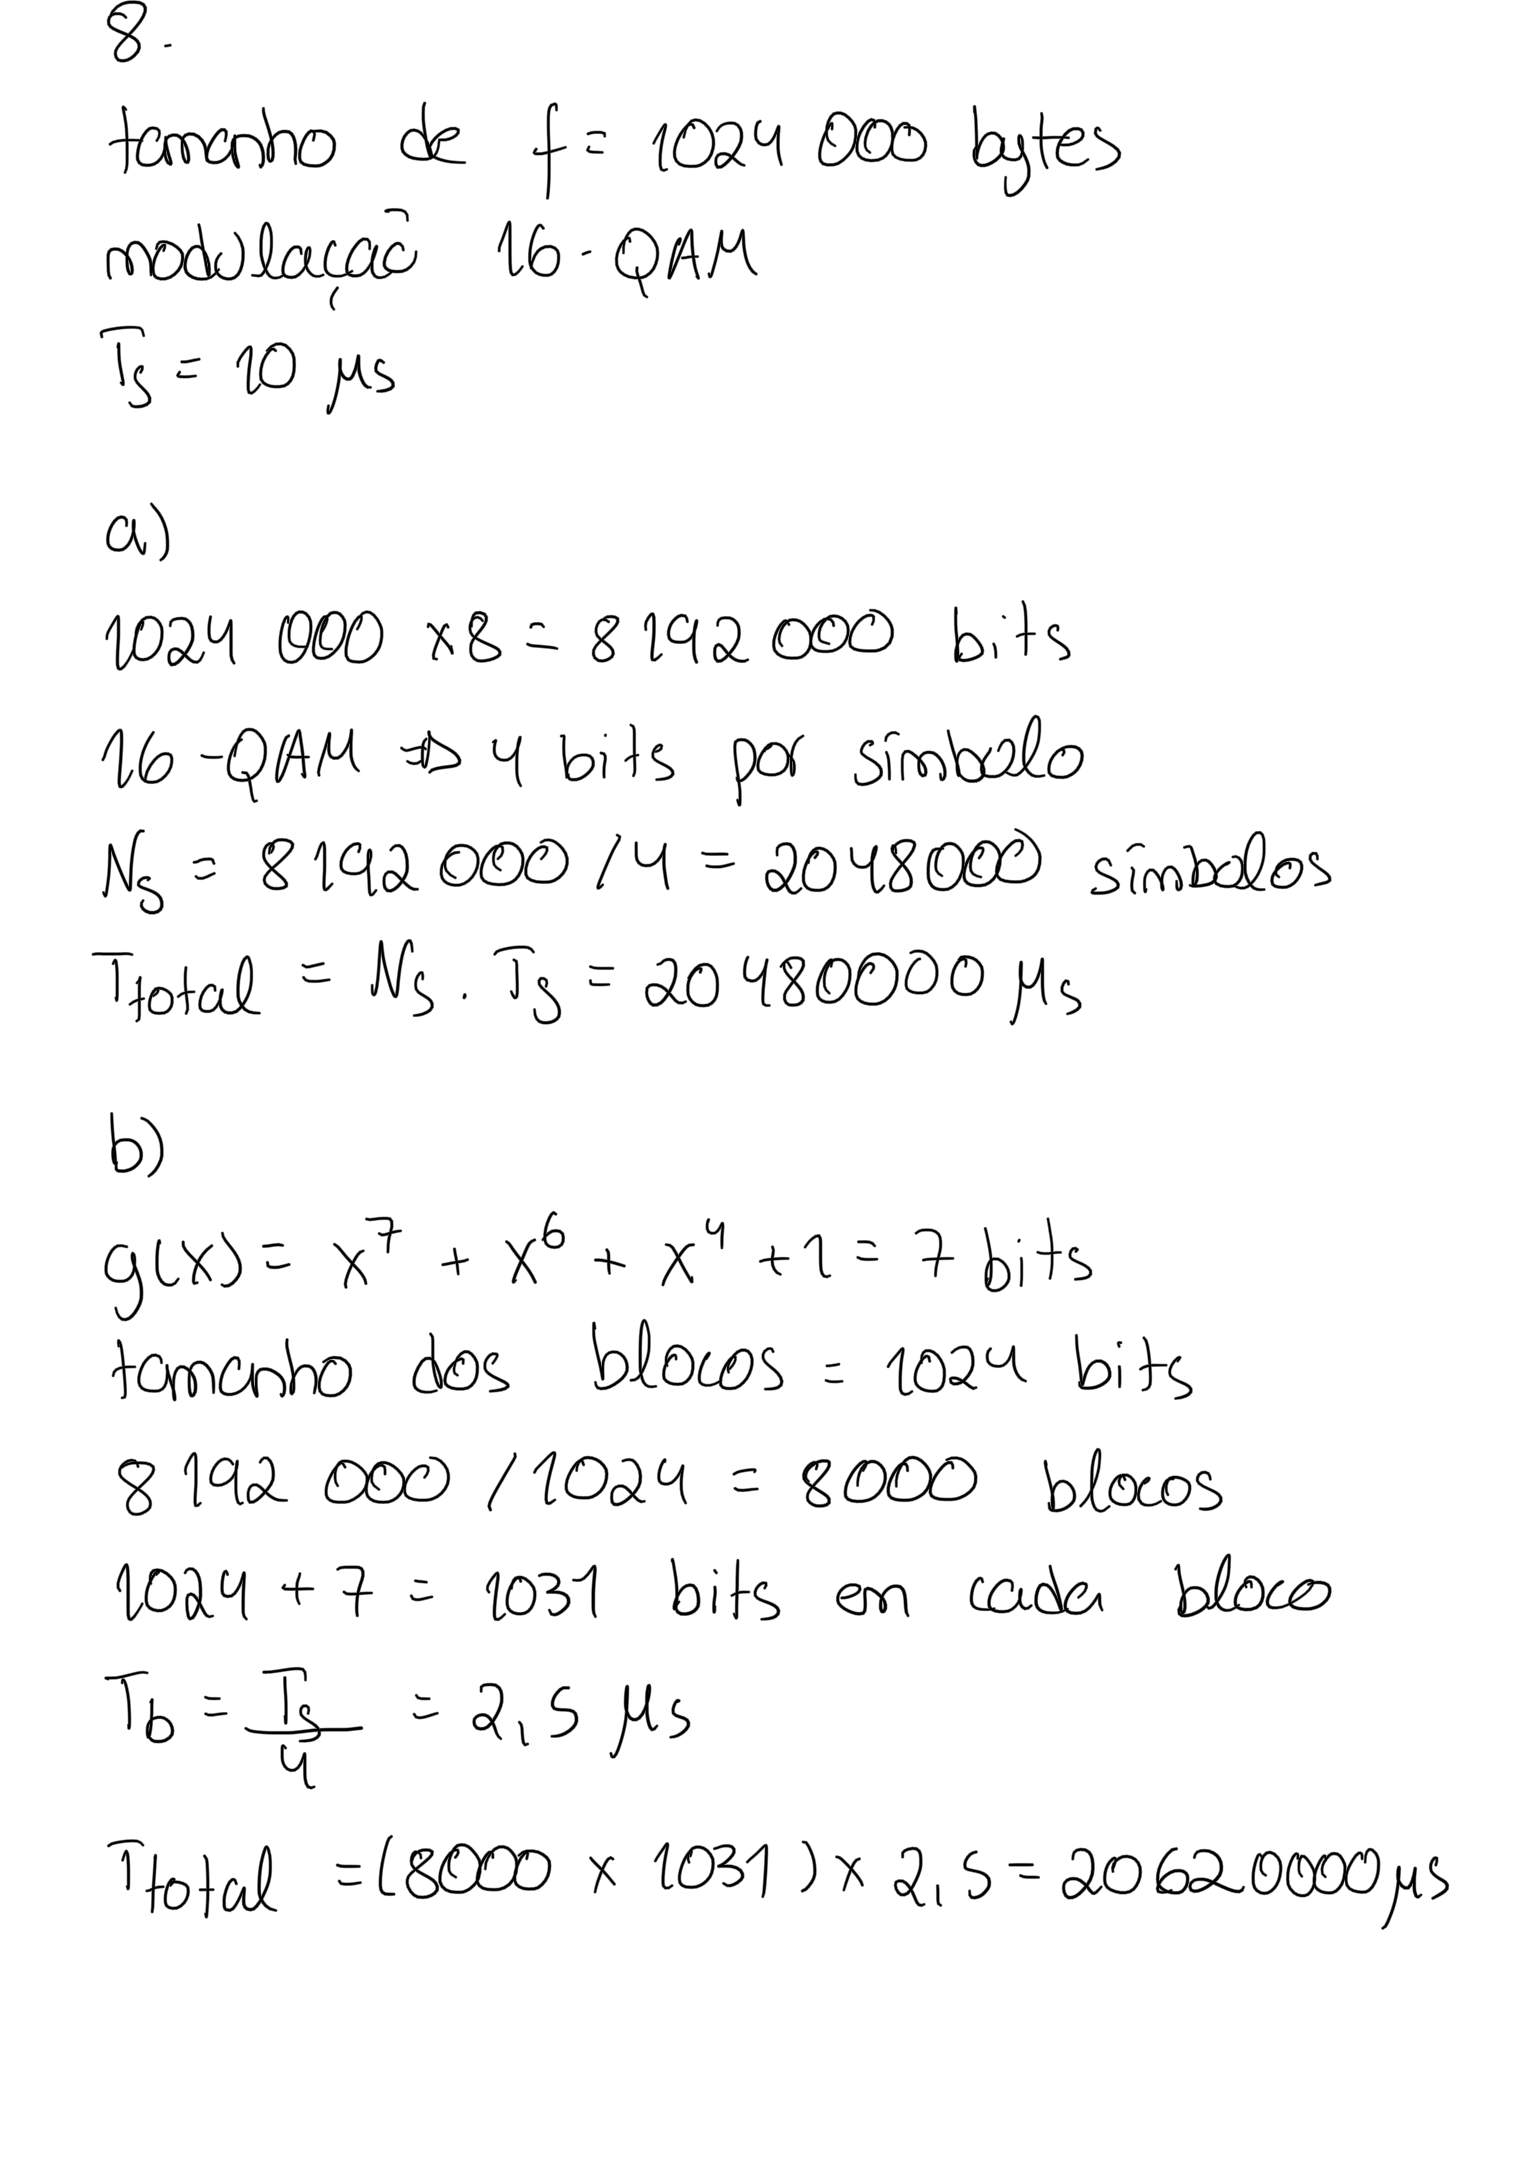 8.
tamanho de f = 1024 000 bytes
modulação 16-QAM
Ts = 10 μs
a)
1024 000 x8 = 8 192 000 bits
16-QAM ⇒ 4 bits por símbolo
Ns = 8 192 000 / 4 = 2048000 símbolos
Ttotal = Ns . Ts = 20 480000 μs
b)
g(x) = x⁷ + x⁶ + x⁴ + 1 = 7 bits
tamanho dos blocos = 1024 bits
8 192 000 / 1024 = 8000 blocos
1024 + 7 = 1031 bits em cada bloco
Tb = Ts/4 = 2,5 μs
Ttotal = (8000 x 1031) x 2,5 = 20620000 μs